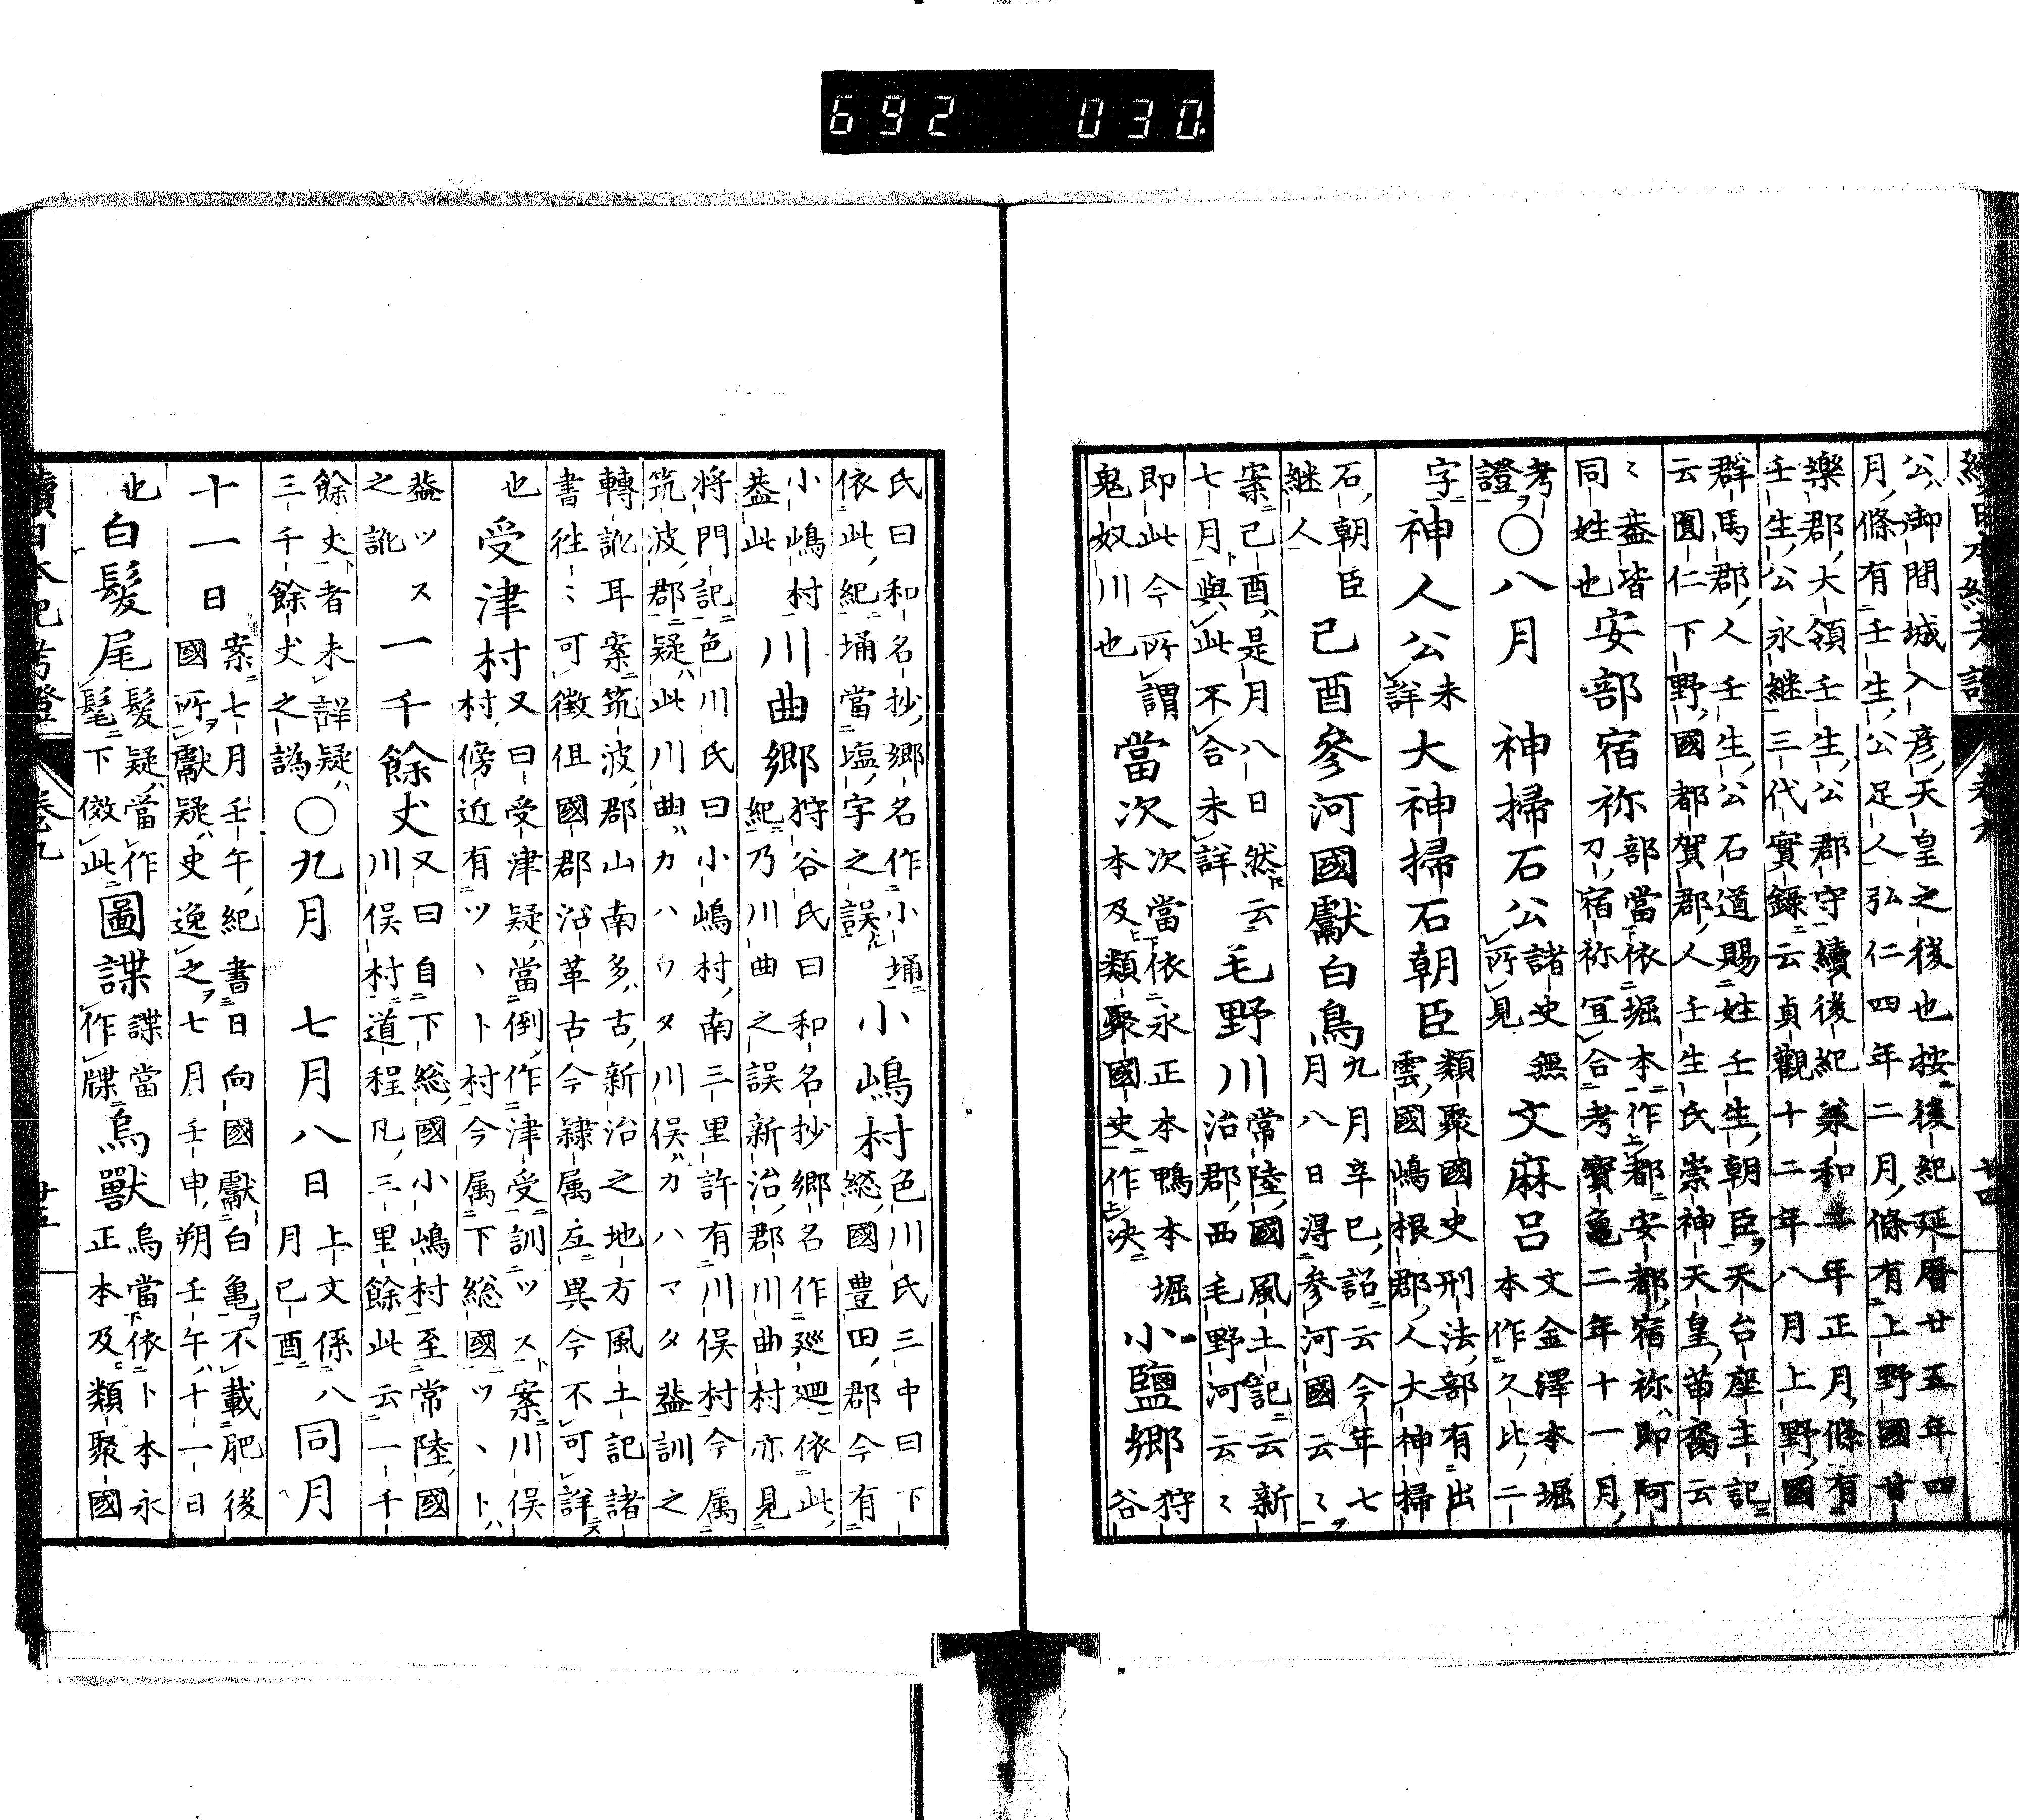 692 030.
公御間城入彦天皇之後也按後紀延暦廿五年四
月條有壬生公足人弘仁四年二月條有上野國甘
樂郡大領壬生公郡守續後紀承和二年正月條有
壬生公永継三代實録云貞觀十二年八月上野國
群馬郡人壬生公石道賜姓壬生朝臣天台座主記
云圓仁下野國都賀郡人壬生氏崇神天皇苗裔云
〻蓋皆同姓也 安部宿祢 部當依堀本作都安都宿祢即阿
刀宿祢冝合考寳亀二年十一月
考證 〇八月 神掃石公 諸史無所見 文麻呂 文金澤本堀本作久比二
字 神人公 未詳 大神掃石朝臣 類聚國史刑法部有出雲國嶋根郡人大神掃
石朝臣継人 己酉參河國獻白鳥 九月辛巳詔云今年七月八日淂參河國云〻
案己酉是月八日然云七月與此不合未詳 毛野川 常陸國風土記云新治郡西毛野河云〻
即此今所謂鬼奴川也 當次 次當依永正本鴨本堀本及類聚國史作决 小鹽郷 狩谷
氏曰和名抄郷名作小埇依此紀埇當塩字之誤 小嶋村 色川氏三中曰下総國豊田郡今有
小嶋村蓋此 川曲郷 狩谷氏曰和名抄郷名作廻依此紀乃川曲之誤新治郡川曲村亦見
将門記色川氏曰小嶋村南三里許有川俣村今属
筑波郡疑此川曲ハカハワタ川俣ハカハマタ蓋訓之
轉訛耳案筑波郡山南多古新治之地方風土記諸
書徃〻可徴但國郡沿革古今隷属互異今不可詳
也 受津村 又曰受津疑當倒作津受訓ツスト案川俣村傍近有ツヽト村今属下総國ツヽトハ
蓋ツス之訛 一千餘丈 又曰自下総國小嶋村至常陸國川俣村道程凡三里餘此云一千
餘丈者未詳疑三千餘丈之譌 〇九月 七月八日 上文係八月己酉 同月
十一日 案七月壬午紀書日向國獻白亀不載肥後國所獻疑史逸之七月壬申朔壬午十一日
也 白髮尾 髮疑當作髦下傚此 圖諜 諜當作牒 烏獸 烏當依卜本永正本及類聚國
續日本紀考證 卷九 廿五